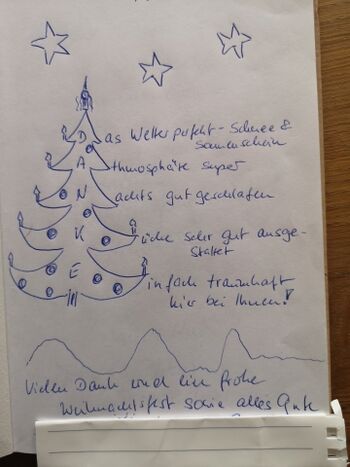 Das Wetter perfekt - Schnee &
Sonnenschein
Athmosphäre super
Nachts gut geschlafen
Küche sehr gut ausge-
staltet
Einfach traumhaft
hier bei Ihnen!
Vielen Dank und ein frohe
Weihnachtsfest sowie alles Gute